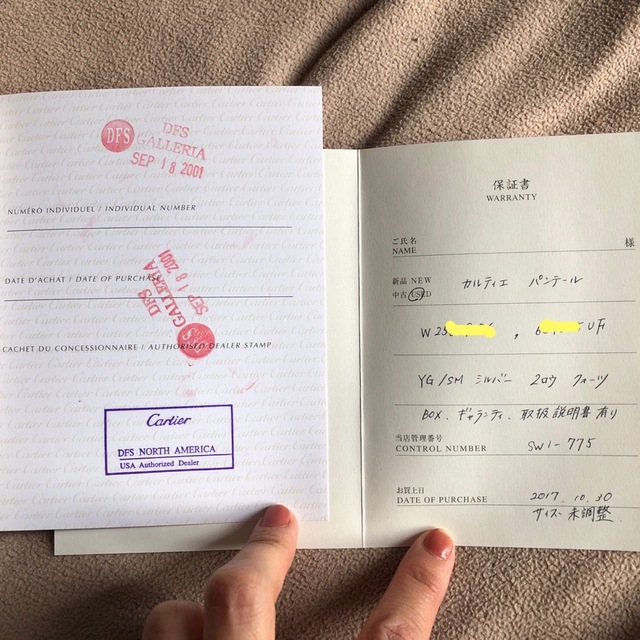 DFS
DFS
GALLERIA
SEP 18 2001
NUMÉRO INDIVIDUEL / INDIVIDUAL NUMBER
DATE D'ACHAT / DATE OF PURCHASE
DFS
GALLERIA
SEP 18 2001
CACHET DU CONCESSIONNAIRE / AUTHORISED DEALER STAMP
Cartier
DFS NORTH AMERICA
USA Authorized Dealer
保証書
WARRANTY
ご氏名
NAME
様
新品 NEW
中古 USED
カルティエ パンテール
W25
UF
YG/SM シルバー 2ロウ クォーツ
BOX、ギャランティ、取扱説明書有り
当店管理番号
CONTROL NUMBER
SW1-775
お買上日
DATE OF PURCHASE
2017.10.30
サイズ未調整